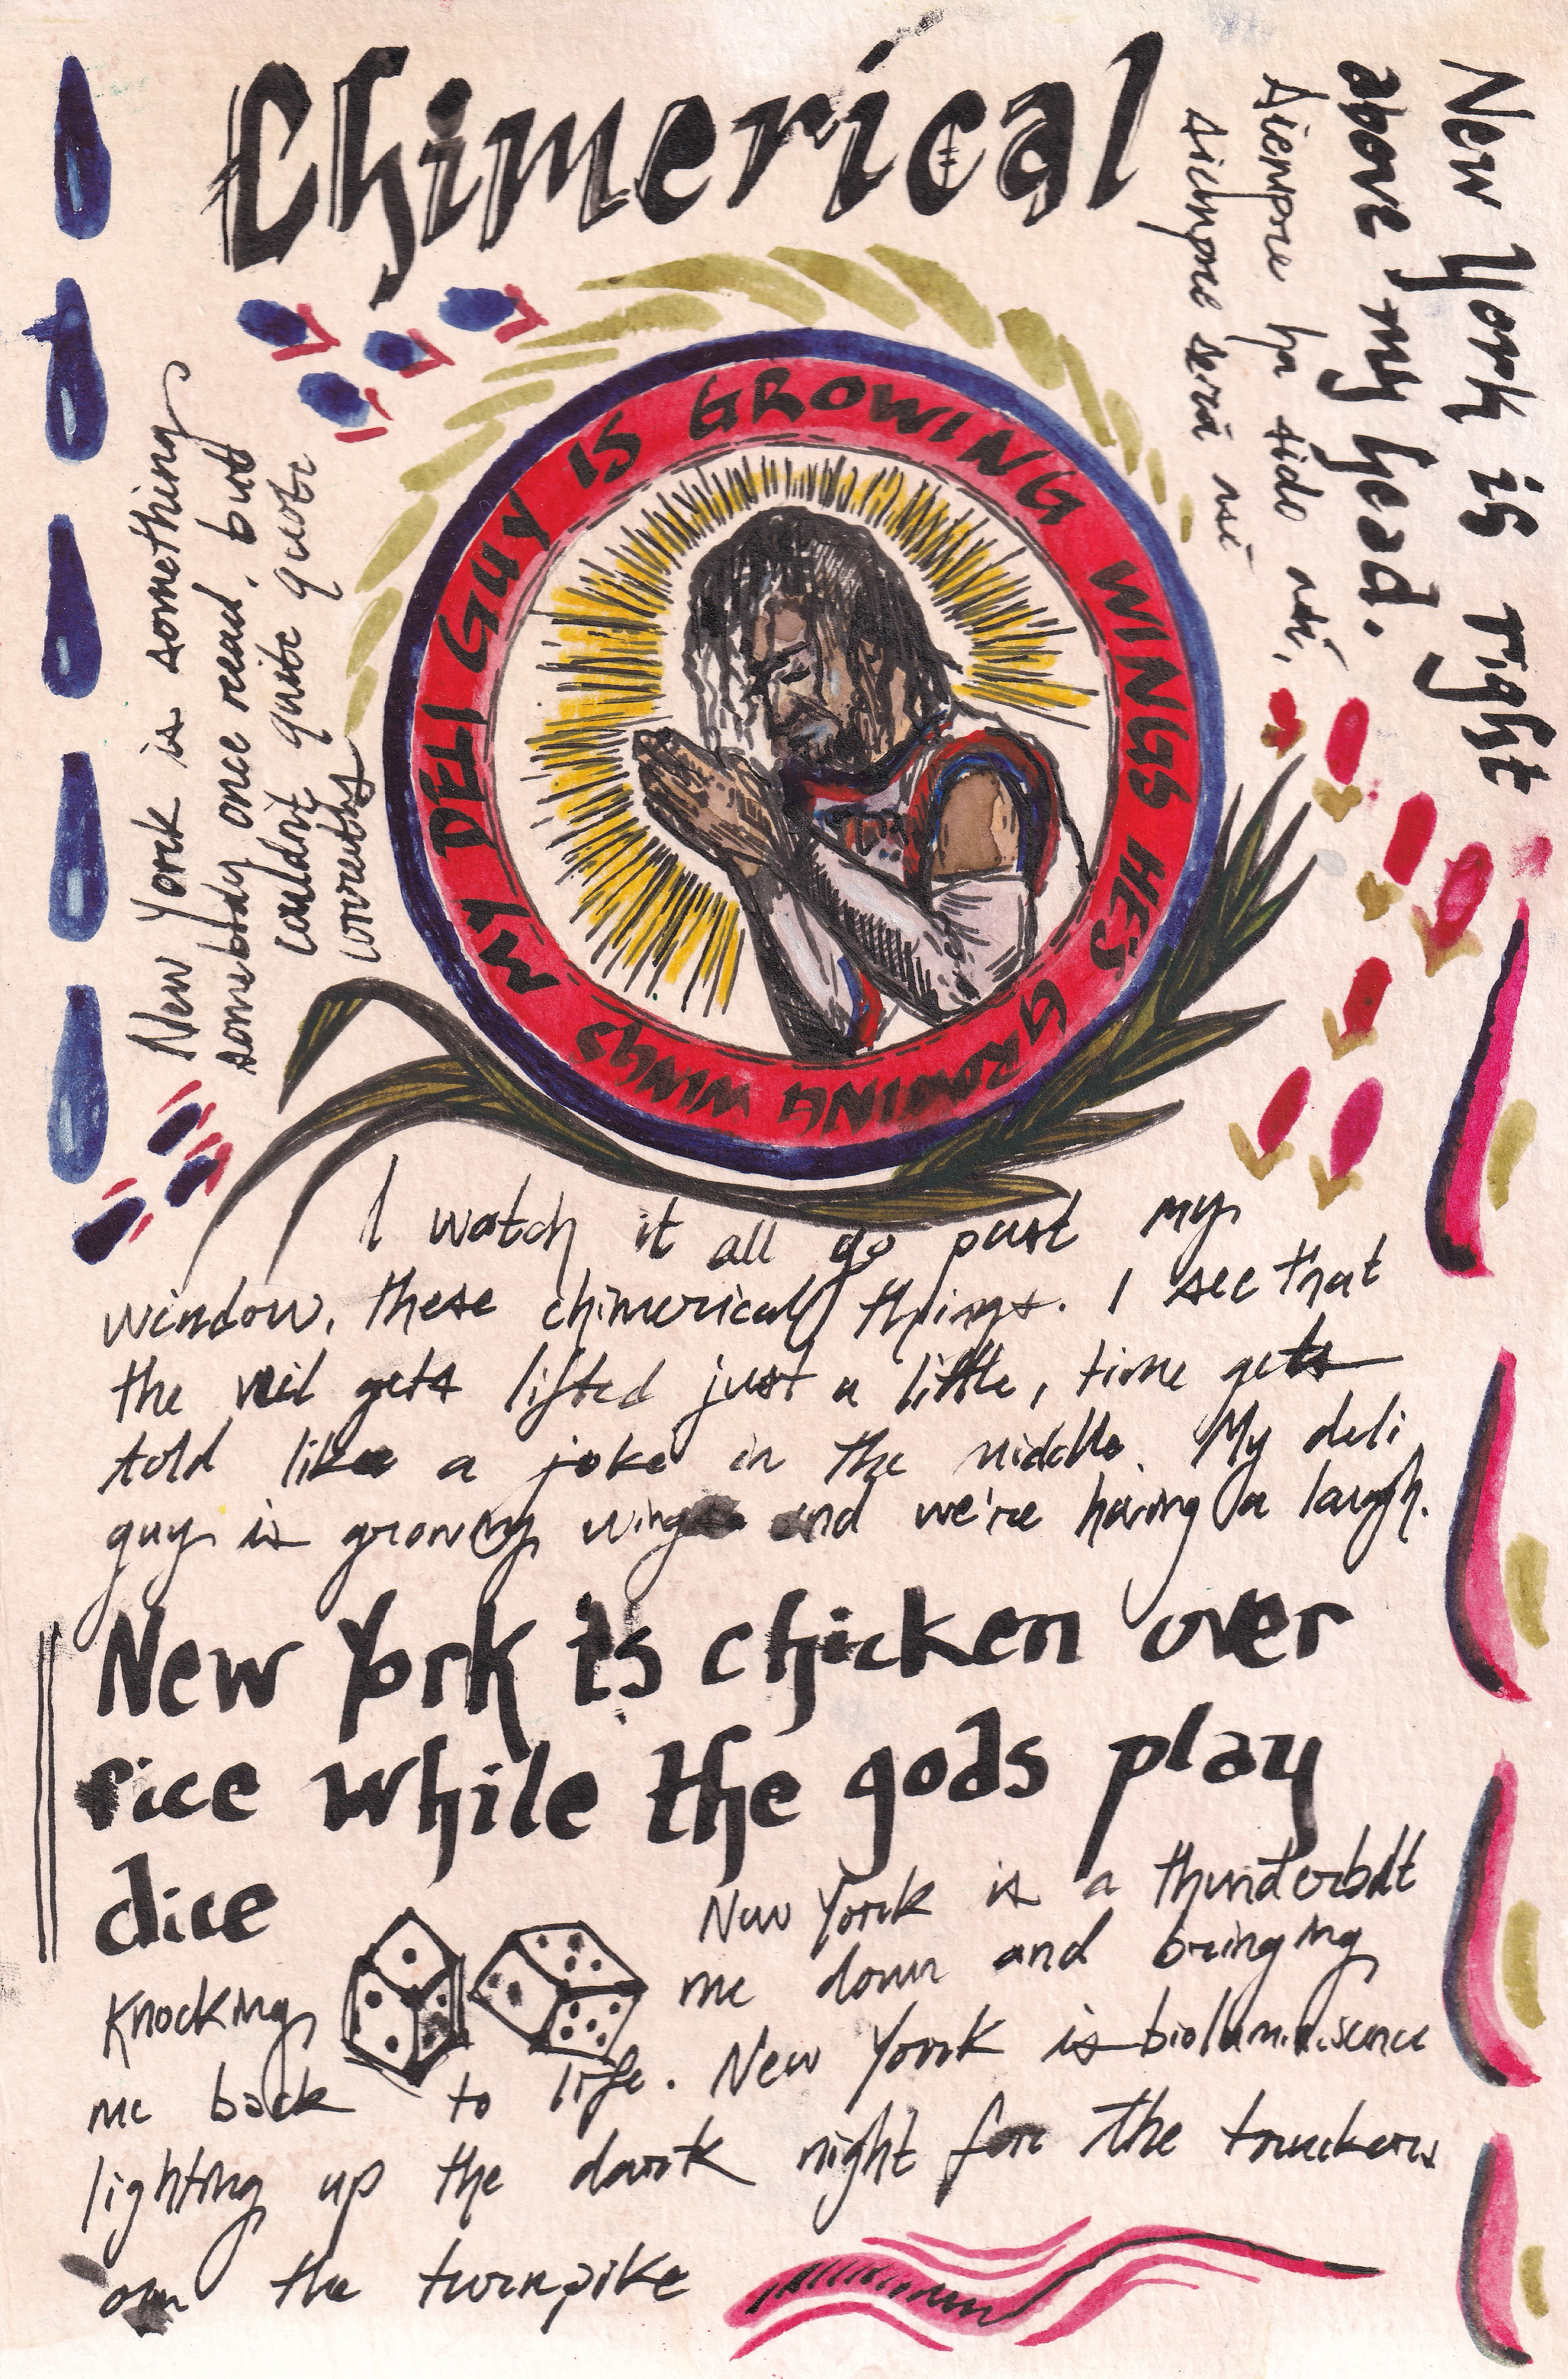 Chimerical
New York is right
above my head.
Siempre ha sido así,
siempre será así
New York is something
somebody once read, but
couldn't quite quote
correctly
MY DELI GUY IS GROWING WINGS HE'S GROWING WINGS
I watch it all go past my
window, these chimerical things. I see that
the veil gets lifted just a little, time gets
told like a joke in the middle. My deli
guy is growing wings and we're having a laugh.
New York is chicken over
rice while the gods play
dice
New York is a thunderbolt
knocking me down and bringing
me back to life. New York is bioluminiscence
lighting up the dark night for the truckers
on the turnpike